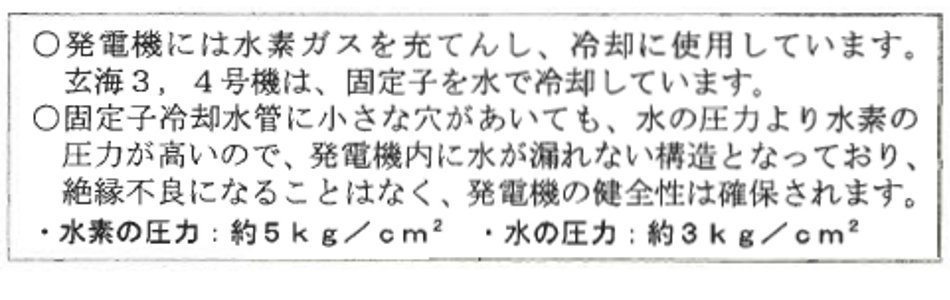 ○発電機には水素ガスを充てんし、冷却に使用しています。
玄海３，４号機は、固定子を水で冷却しています。
○固定子冷却水管に小さな穴があいても、水の圧力より水素の
圧力が高いので、発電機内に水が漏れない構造となっており、
絶縁不良になることはなく、発電機の健全性は確保されます。
・水素の圧力：約５ｋｇ／ｃｍ² ・水の圧力：約３ｋｇ／ｃｍ²